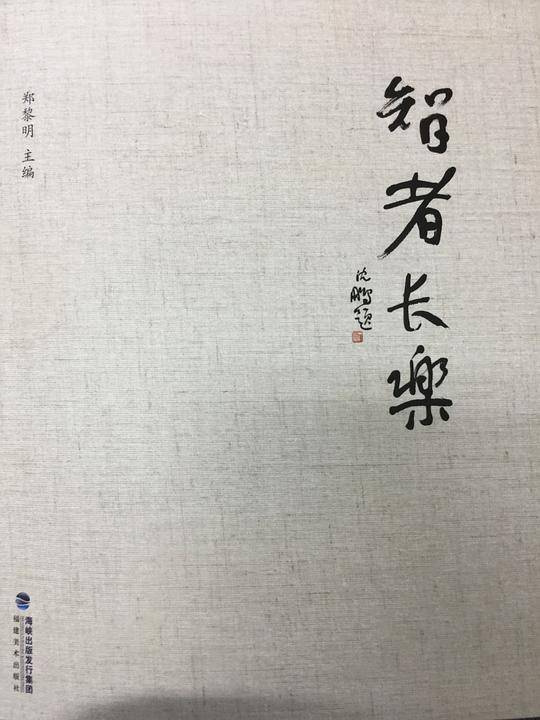 智者长樂
沈鹏题
郑黎明 主编
海峡出版发行集团
福建美术出版社